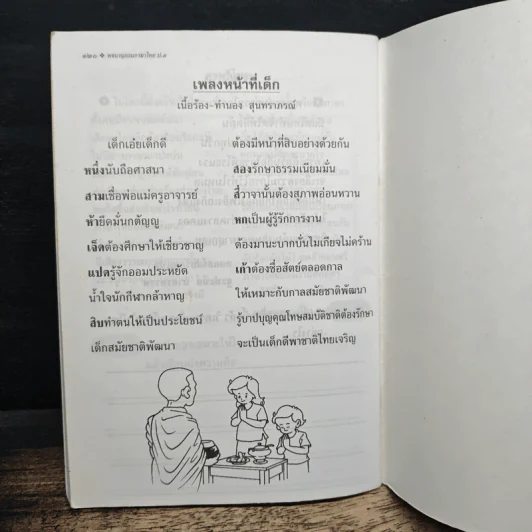 ๑๒๐ ❖ พจนานุกรมภาษาไทย ป.๑
เพลงหน้าที่เด็ก
เนื้อร้อง-ทำนอง สุนทราภรณ์
เด็กเอ๋ยเด็กดี ต้องมีหน้าที่สิบอย่างด้วยกัน
หนึ่งนับถือศาสนา สองรักษาธรรมเนียมมั่น
สามเชื่อพ่อแม่ครูอาจารย์ สี่วาจานั้นต้องสุภาพอ่อนหวาน
ห้ายึดมั่นกตัญญู หกเป็นผู้รู้รักการงาน
เจ็ดต้องศึกษาให้เชี่ยวชาญ ต้องมานะบากบั่นไม่เกียจไม่คร้าน
แปดรู้จักออมประหยัด เก้าต้องซื่อสัตย์ตลอดกาล
น้ำใจนักกีฬากล้าหาญ ให้เหมาะกับกาลสมัยชาติพัฒนา
สิบทำตนให้เป็นประโยชน์ รู้บาปบุญคุณโทษสมบัติชาติต้องรักษา
เด็กสมัยชาติพัฒนา จะเป็นเด็กดีพาชาติไทยเจริญ